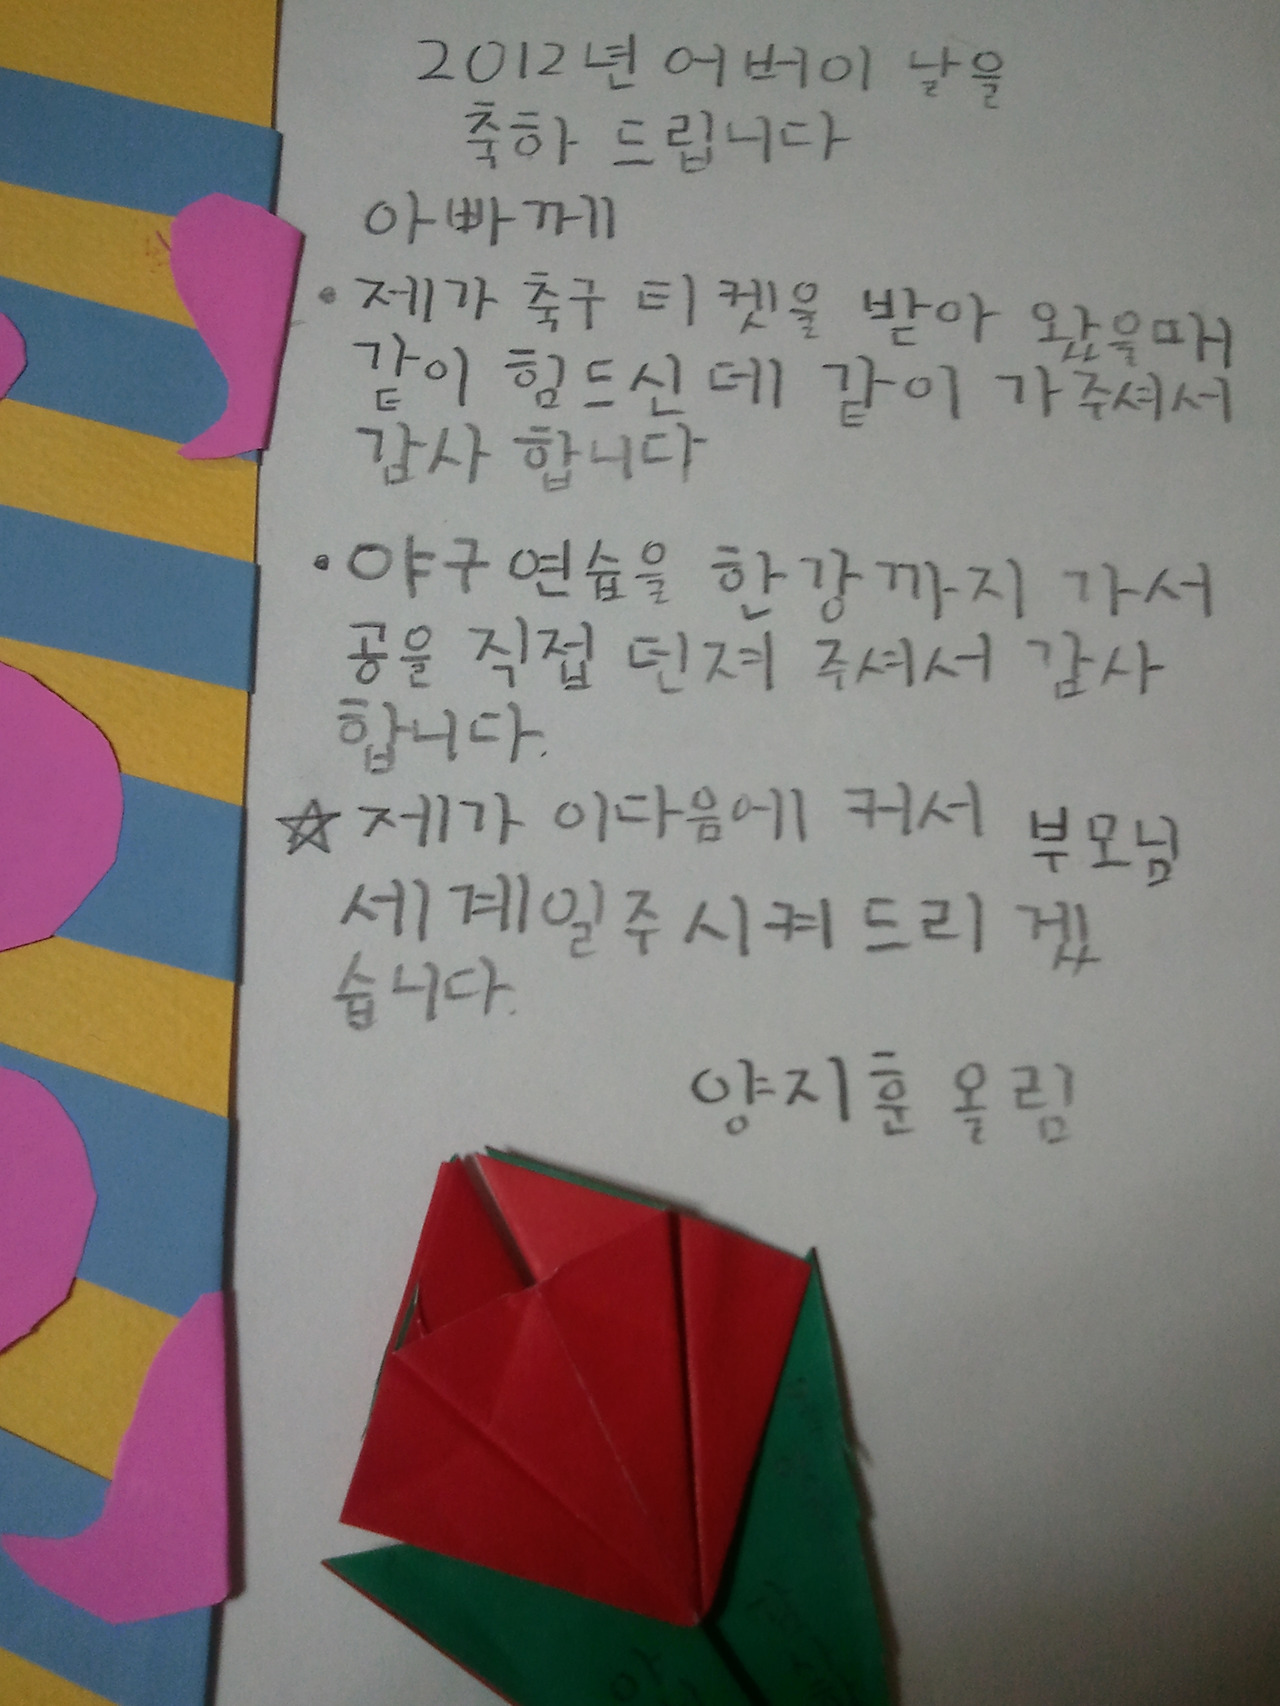 2012년 어버이 날을
축하 드립니다
아빠께
• 제가 축구 티켓을 받아 왔을때
같이 힘드신데 같이 가주셔서
감사 합니다
• 야구연습을 한강까지 가서
공을 직접 던져 주셔서 감사
합니다.
☆ 제가 이다음에 커서 부모님
세계일주 시켜 드리 겠
습니다.
양지훈 올림